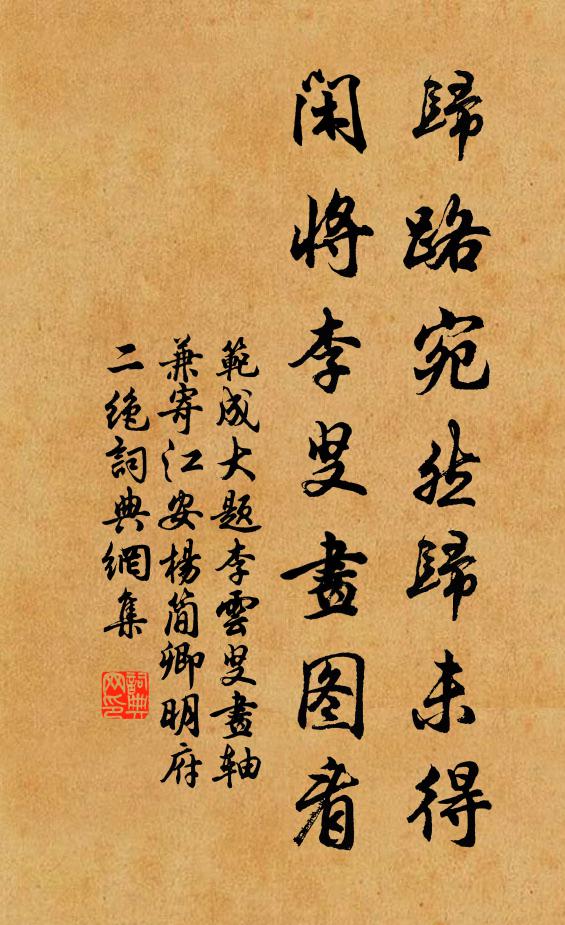 歸路宛然歸未得
閑將李叟畫图看
範成大题李雲叟畫軸
兼寄江安楊簡卿明府
二绝詞典網集
詞典网印